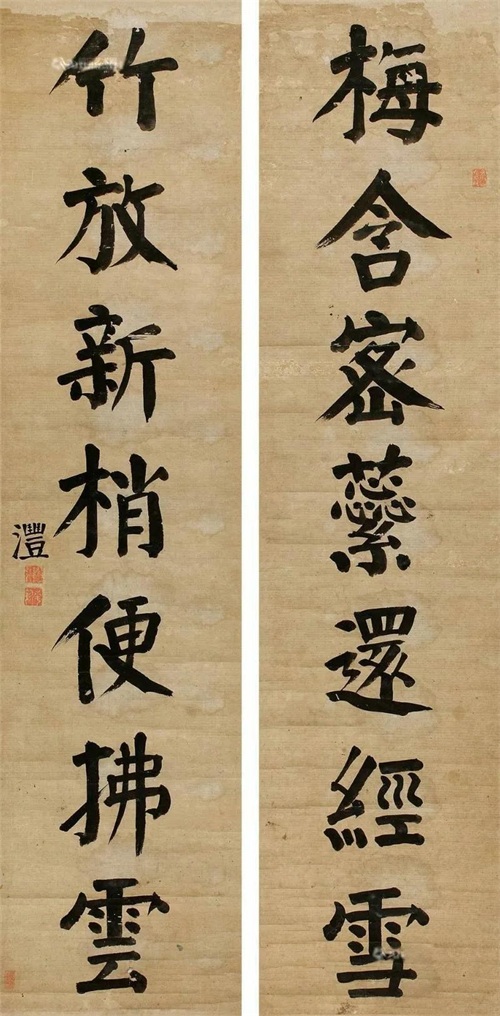 梅含密蘂還經雪
竹放新梢便拂雲
灃